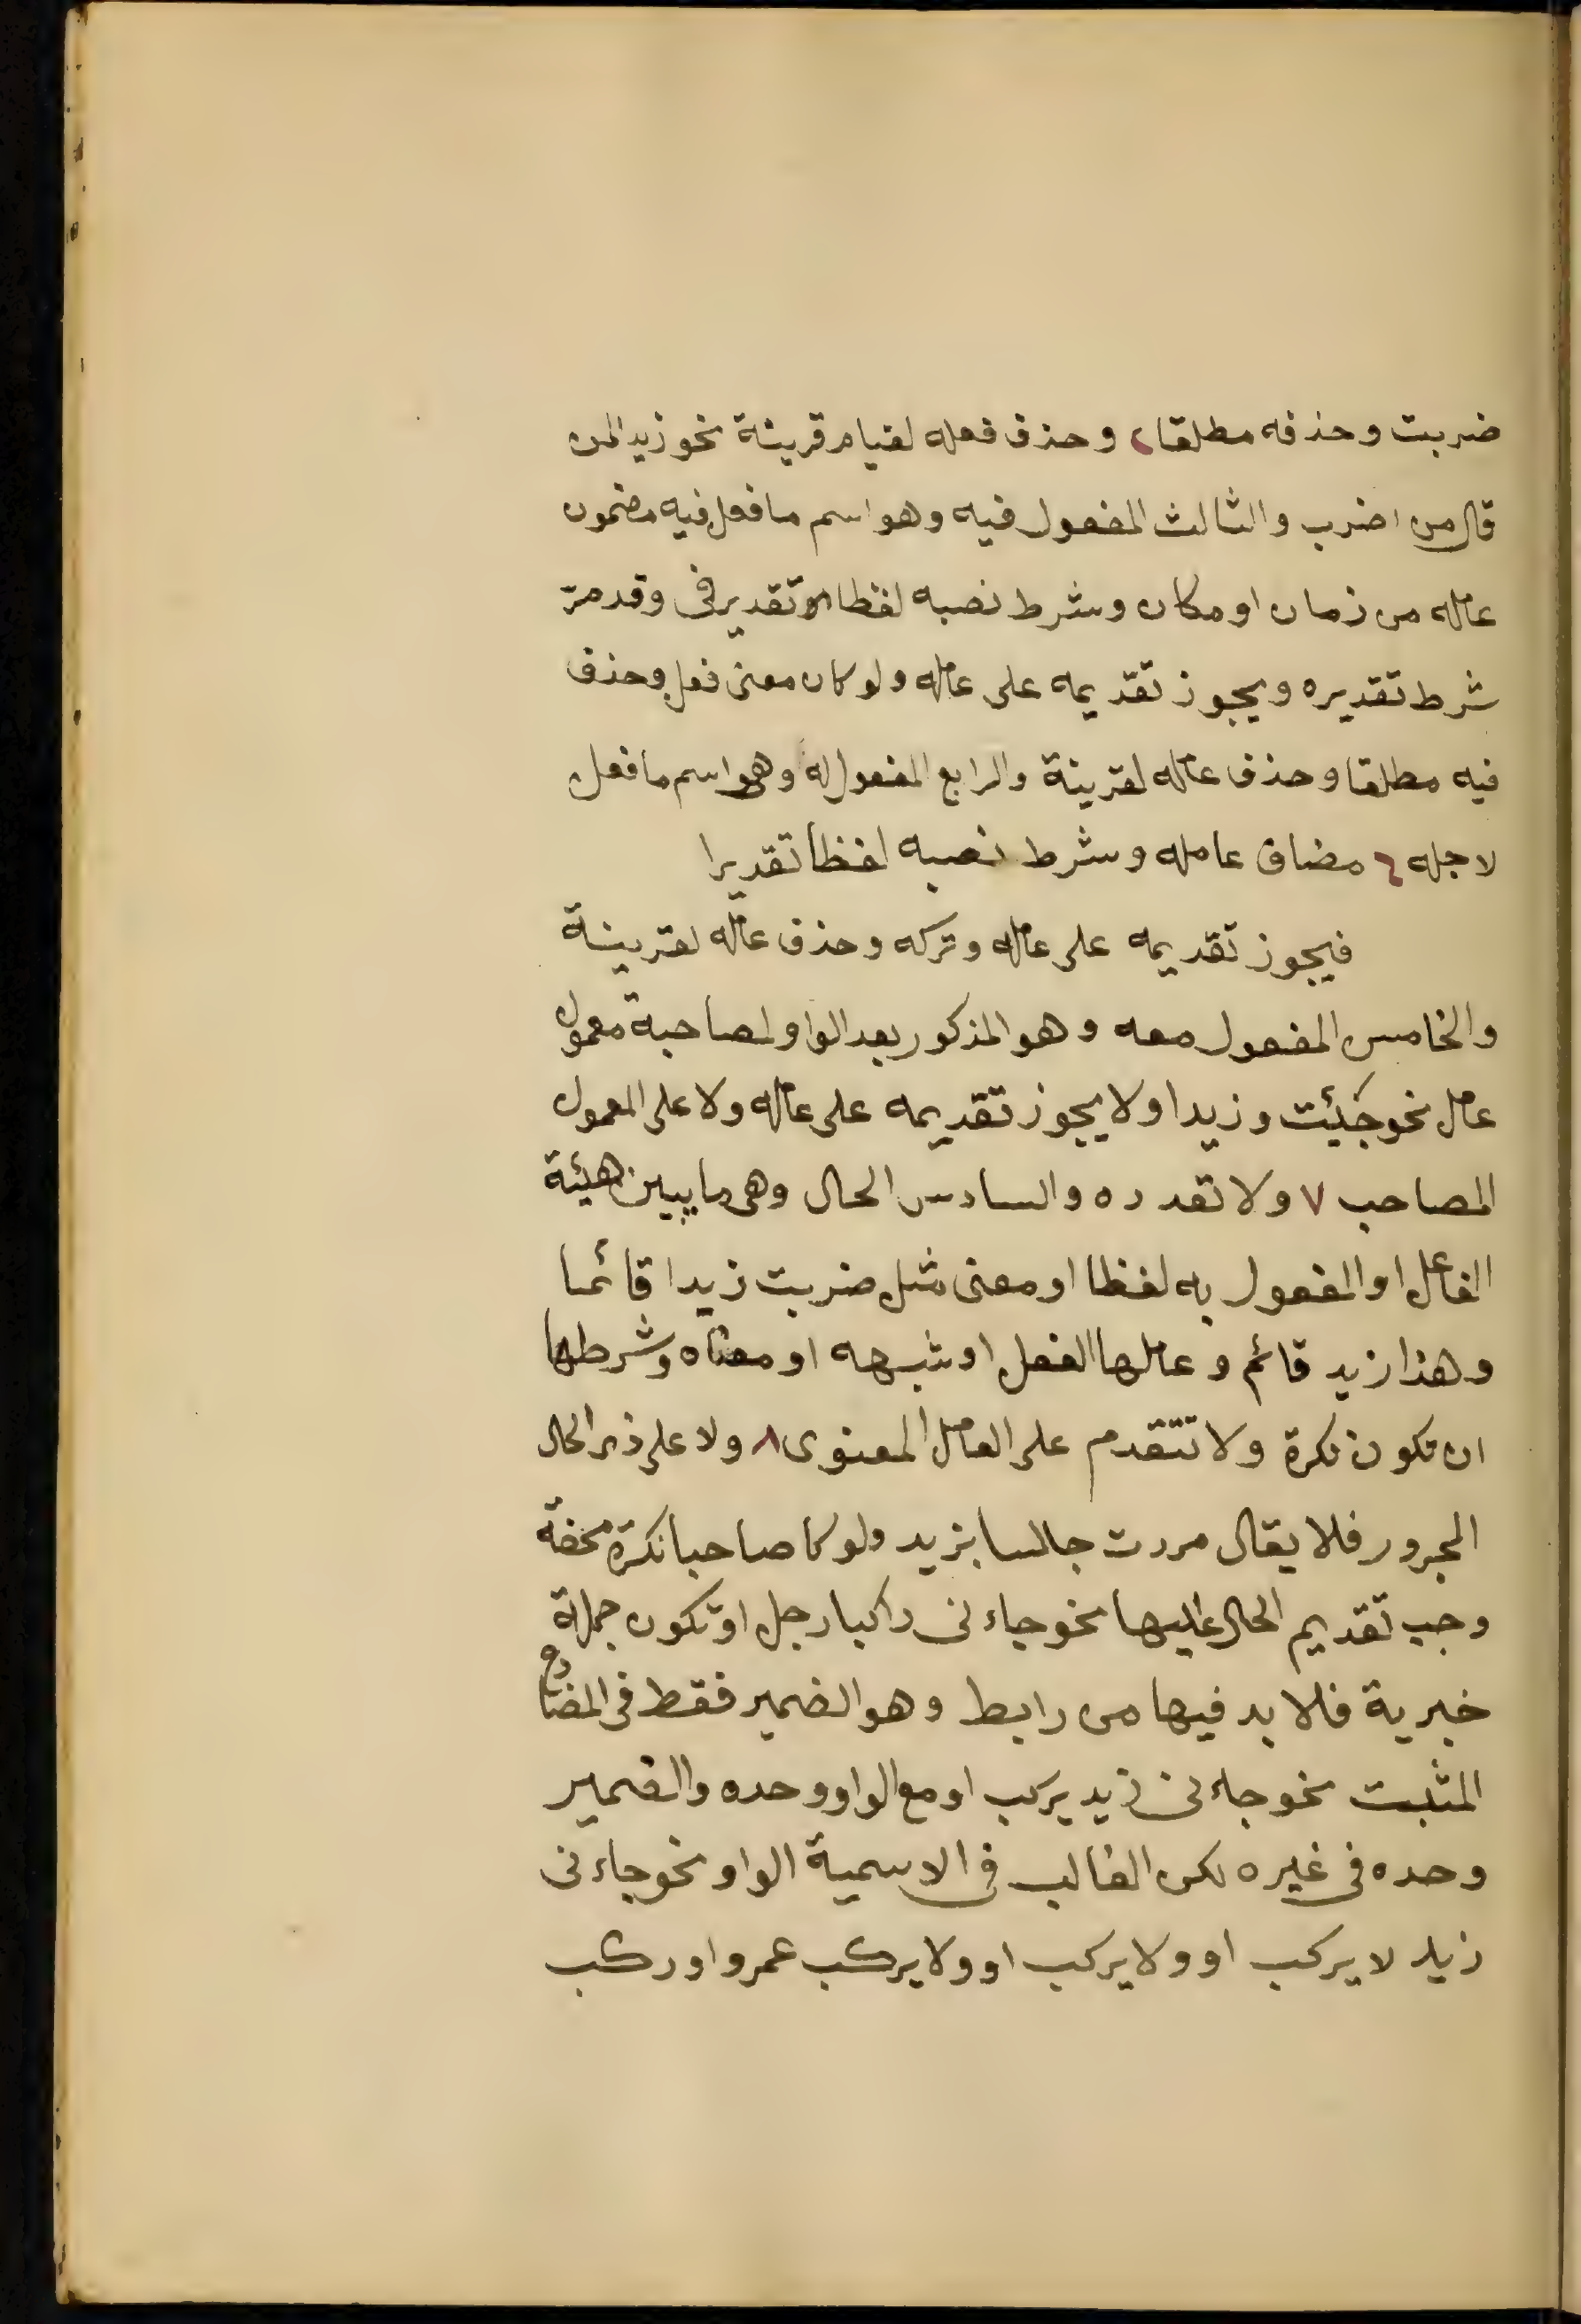 ضربت وحذفه مطلقا، وحذف فعله لقيام قرينة نحو زيدا لمن
قال من اضرب والثالث المفعول فيه وهو اسم ما فعل فيه مضمون
عامله من زمان او مكان وشرط نصبه لفظا تقدير فى وقد مرّ
شرط تقديره ويجوز تقديمه على عامله ولو كان معنى فعل وحذف
فيه مطلقا وحذف عامله لقرينة والرابع المفعول له وهو اسم ما فعل
لاجله ٦ مضاف عامله وشرط نصبه لفظا تقديرا
فيجوز تقديمه على عامله وتركه وحذف عامله لقرينة
والخامس المفعول معه وهو المذكور بعد الواو لمصاحبة معمول
عامل نحو جئت وزيدا ولا يجوز تقديمه على عامله ولا على المعمول
المصاحب ٧ ولا تعدده والسادس الحال وهى ما يبين هيئة
الفاعل او المفعول به لفظا او معنى مثل ضربت زيدا قائما
وهذا زيد قائم وعاملها الفعل او شبهه او معناه وشرطها
ان تكون نكرة ولا تتقدم على العامل المعنوى ٨ ولا على ذى الحال
المجرور فلا يقال مررت جالسا بزيد ولو كا صاحبا نكرة محضة
وجب تقديم الحال عليها نحو جاءنى راكبا رجل او تكون جملة
خبرية فلا بد فيها من رابط وهو الضمير فقط فى المضارع
المثبت نحو جاءنى زيد يركب او مع الواو وحده والضمير
وحده فى غيره لكن الغالب فى الاسمية الواو نحو جاءنى
زيد لا يركب او ولا يركب او ولا يركب عمرو او ركب